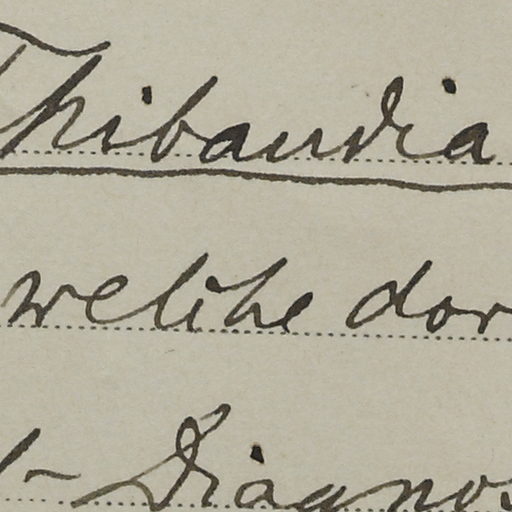 Thibaudia
welche dor
- Diagnos